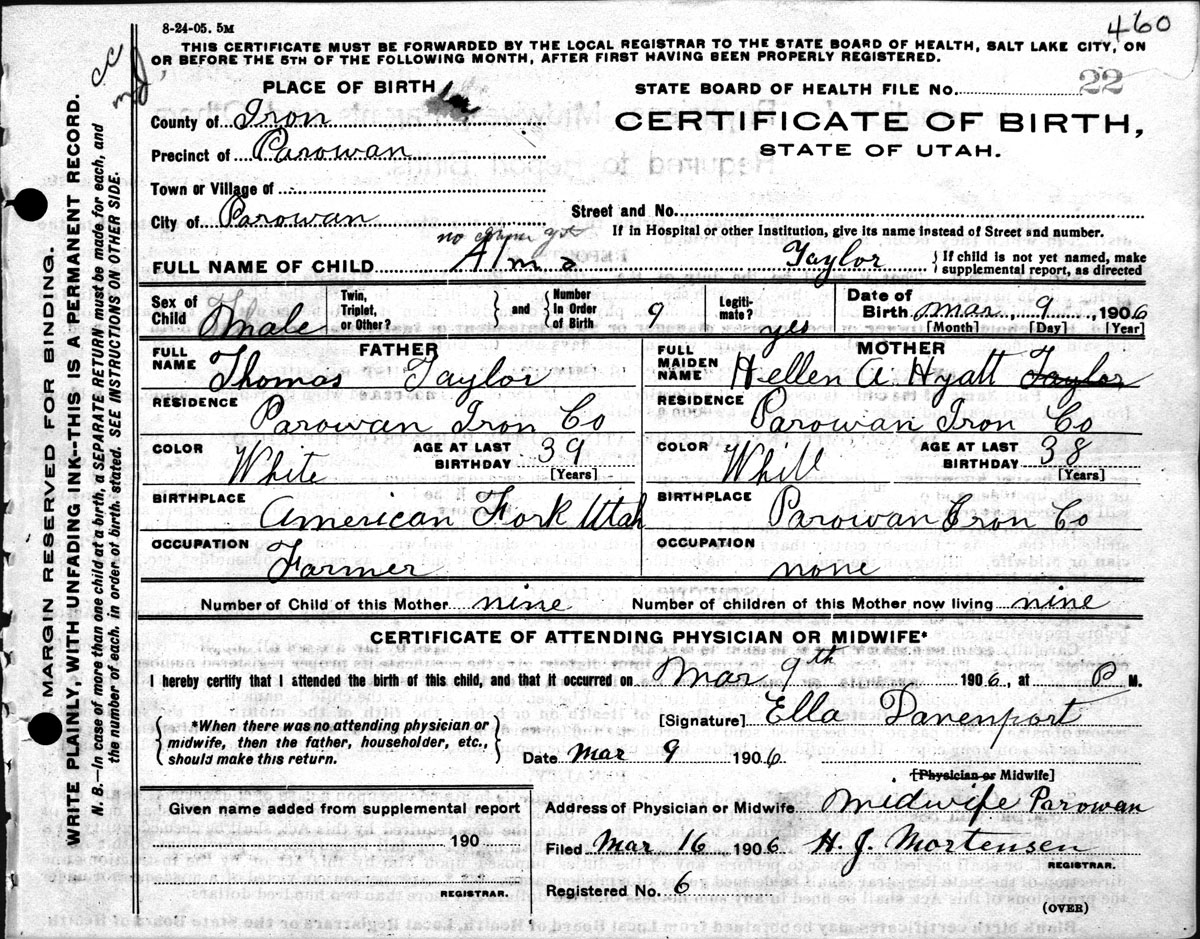 8-24-05. 5M
460
THIS CERTIFICATE MUST BE FORWARDED BY THE LOCAL REGISTRAR TO THE STATE BOARD OF HEALTH, SALT LAKE CITY, ON
OR BEFORE THE 5TH OF THE FOLLOWING MONTH, AFTER FIRST HAVING BEEN PROPERLY REGISTERED.
PLACE OF BIRTH
STATE BOARD OF HEALTH FILE No. 22
County of Iron
CERTIFICATE OF BIRTH,
Precinct of Parowan
STATE OF UTAH.
Town or Village of
City of Parowan
Street and No.
If in Hospital or other Institution, give its name instead of Street and number.
no
FULL NAME OF CHILD Alma Taylor
{If child is not yet named, make
supplemental report, as directed
Sex of Child male
Twin, Triplet, or Other?
} and {
Number In Order of Birth 9
Legiti-mate? yes
Date of Birth Mar 9, 1906
[Month] [Day] [Year]
FATHER
FULL NAME Thomas Taylor
RESIDENCE Parowan Iron Co
COLOR White
AGE AT LAST BIRTHDAY 39 [Years]
BIRTHPLACE American Fork Utah
OCCUPATION Farmer
MOTHER
FULL MAIDEN NAME Hellen A Hyatt Taylor
RESIDENCE Parowan Iron Co
COLOR Whit
AGE AT LAST BIRTHDAY 38 [Years]
BIRTHPLACE Parowan Iron Co
OCCUPATION none
Number of Child of this Mother nine
Number of children of this Mother now living nine
CERTIFICATE OF ATTENDING PHYSICIAN OR MIDWIFE*
I hereby certify that I attended the birth of this child, and that it occurred on Mar 9th 1906, at P M.
{*When there was no attending physician or
midwife, then the father, householder, etc.,
should make this return.}
[Signature] Ella Davenport
Date Mar 9 1906
[Physician or Midwife]
Given name added from supplemental report
190
REGISTRAR.
Address of Physician or Midwife Midwife Parowan
Filed Mar 16 1906 H. J. Mortensen
REGISTRAR.
Registered No. 6
(OVER)
MARGIN RESERVED FOR BINDING.
WRITE PLAINLY, WITH UNFADING INK--THIS IS A PERMANENT RECORD.
N. B.—In case of more than one child at a birth, a SEPARATE RETURN must be made for each, and
the number of each, in order of birth, stated. SEE INSTRUCTIONS ON OTHER SIDE.